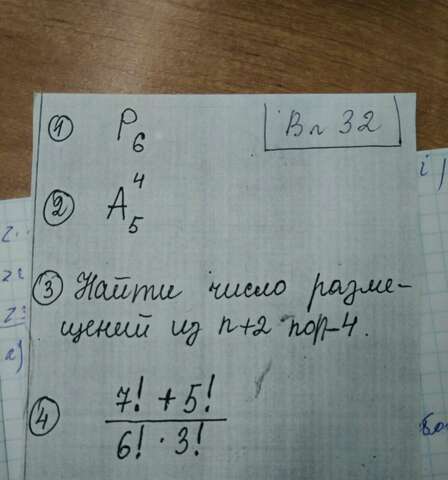 ① P₆
Вл 32
② A₅⁴
③ Найти число разме-
щений из n+2 по n-4.
④ (7! + 5!) / (6! · 3!)